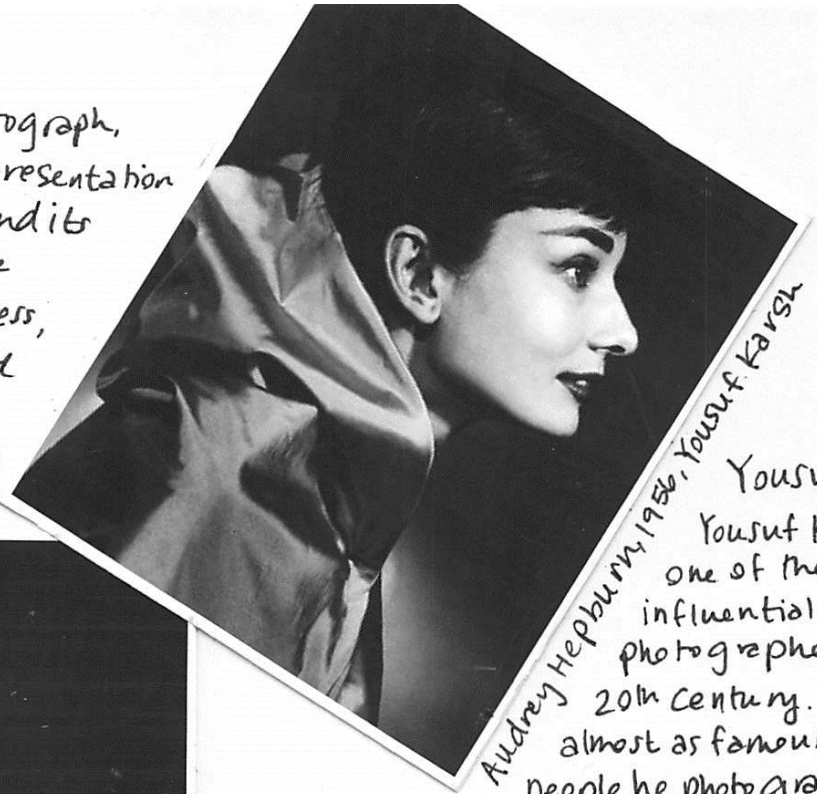 tograph,
resentation
nd its
ess,
Audrey Hepburn, 1956, Yousuf Karsh
Yousu
Yousuf K
one of the
influential
photographe
20th Century.
almost as famou
people he photogra